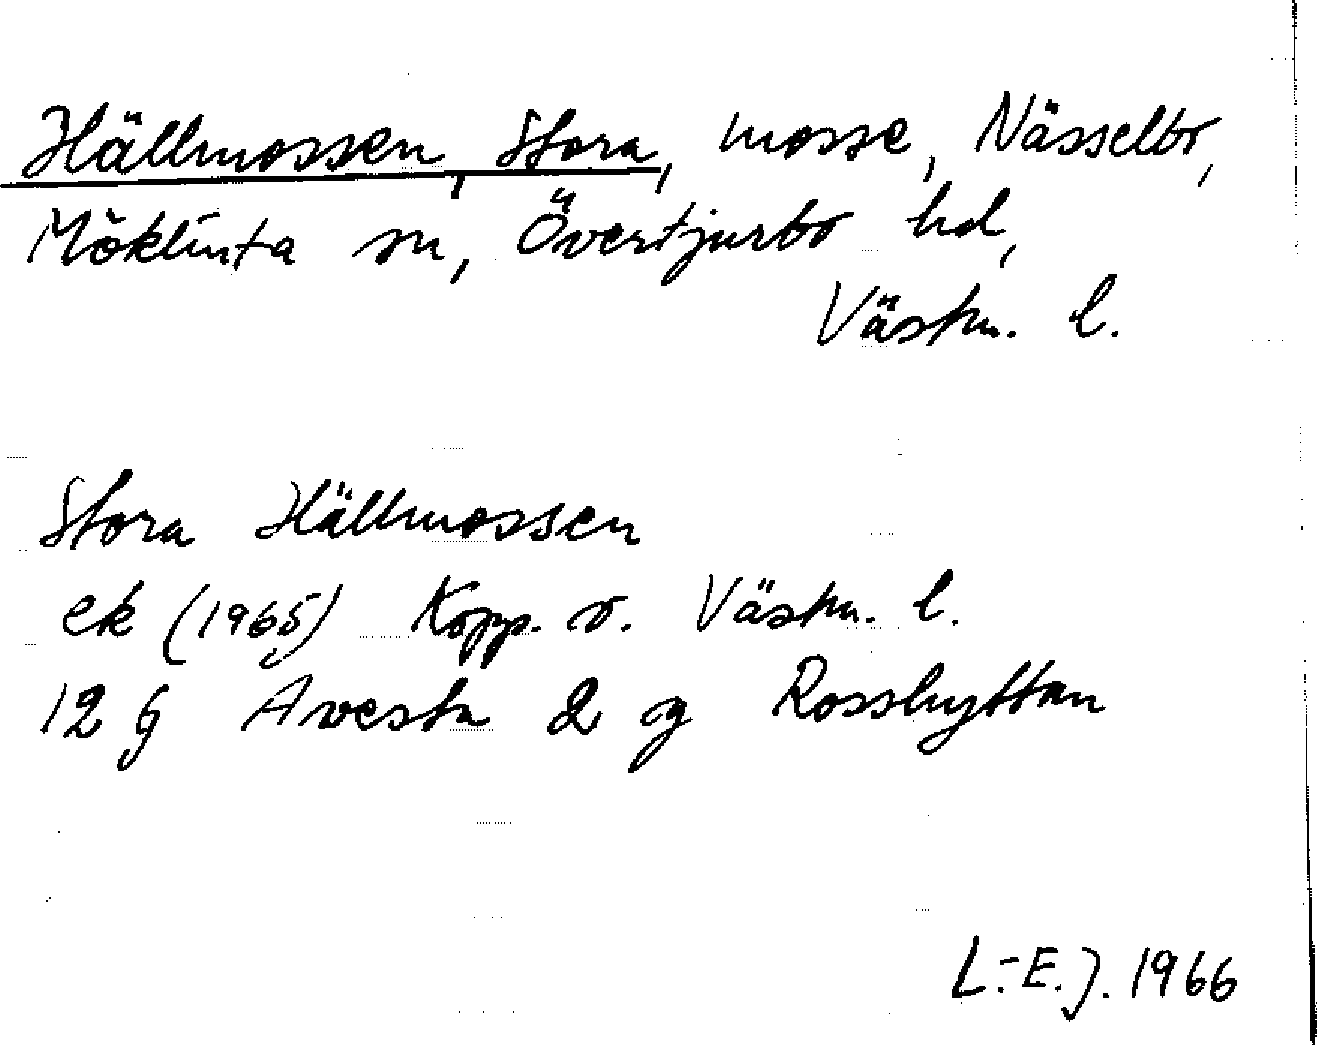 Hällmossen, Stora, mosse, Nässelbo,
Möklinta sn, Övertjurbo hd,
Västm. l.
Stora Hällmossen
ek (1965) Kopp. o. Västm. l.
12 G Avesta 2 g Rosshyttan
L.-E.J. 1966